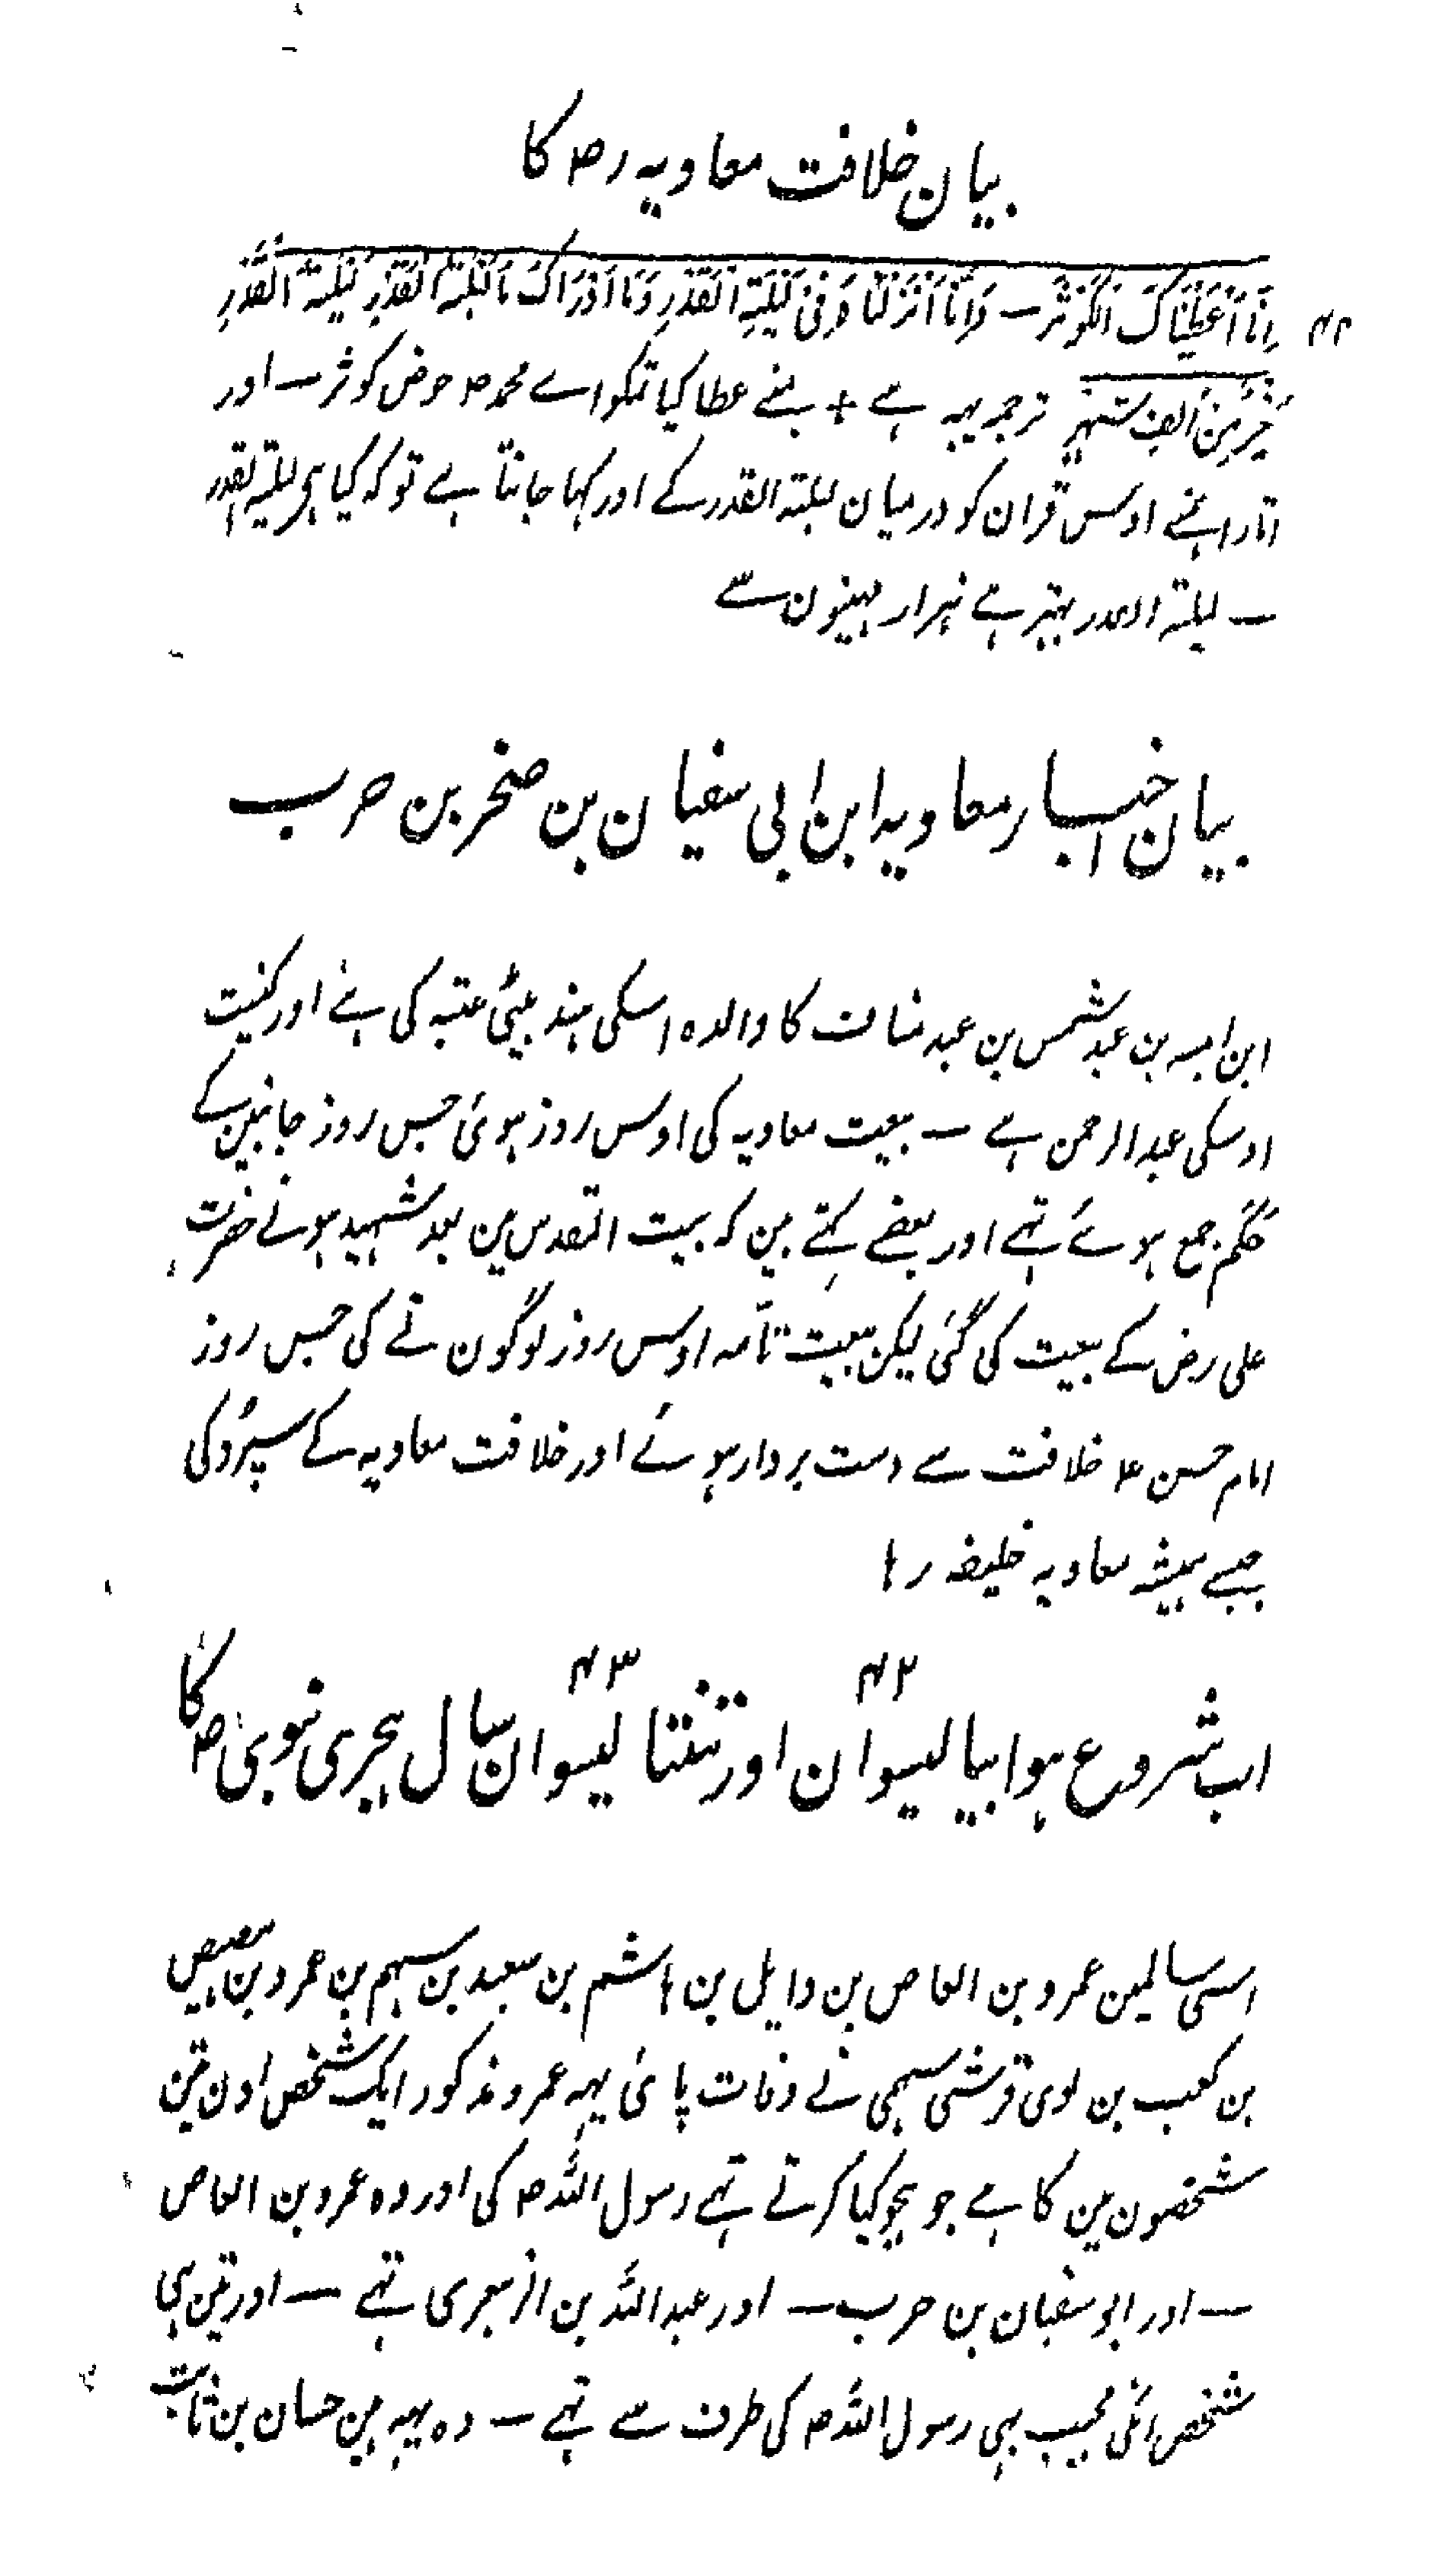 بیان خلافت معاویہ رضـ کا
اِنَّا اَعْطَیْنَاکَ الْکَوْثَرَ — وَاِنَّا اَنْزَلْنَاہُ فِیْ لَیْلَةِ الْقَدْرِ وَمَا اَدْرَاکَ مَا لَیْلَةُ الْقَدْرِ لَیْلَةُ الْقَدْرِ ۴۲
خَیْرٌ مِّنْ اَلْفِ شَہْرٍ ترجمہ یہہ ہے + ہمنے عطا کیا تمکو اے محمد ص حوض کوثر — اور
اتارا ہمنے اوس قران کو درمیان لیلتہ القدر کے اور کیا جانتا ہے تو کہ کیا ہی لیلتہ القدر
— لیلتہ القدر بہتر ہے ہزار مہینون سے
بیان اخبار معاویہ ابن ابی سفیان بن صخر بن حرب
ابن امیہ بن عبد شمس بن عبد مناف کا والدہ اسکی ہند بیٹی عتبہ کی ہے اور کنیت
اوسکی عبد الرحمن ہے — بیعت معاویہ کی اوس روز ہوئی جس روز جانبین کے
حَکَم جمع ہوئے تہے اور بعضے کہتے ہین کہ بیت المقدس مین بعد شہید ہونے حضرت
علی رض کے بیعت کی گئی لیکن بیعت تامہ اوس روز لوگون نے کی جس روز
امام حسن ع خلافت سے دست بردار ہوئے اور خلافت معاویہ کے سپرد کی
جبسے ہمیشہ معاویہ خلیفہ رہا
۴۲ ۴۳
اب شروع ہوا بیالیسوان اور تنتالیسوان سال ہجری نبوی ص کا
اسی سالمین عمرو بن العاص بن وایل بن ہاشم بن سعید بن سہم بن عمرو بن ہصیص
بن کعب بن لوی قرشی سہمی نے وفات پائی یہہ عمرو مذکور ایک شخص اون تین
شخصون مین کا ہے جو ہجو کیا کرتے تہے رسول اللہ ص کی اور وہ عمرو بن العاص
— اور ابو سفیان بن حرب — اور عبد اللہ بن الزبعری تہے — اور تین ہی
شخص انکی مجیب بہی رسول اللہ ص کی طرف سے تہے — وہ یہہ ہین حسان بن ثابت